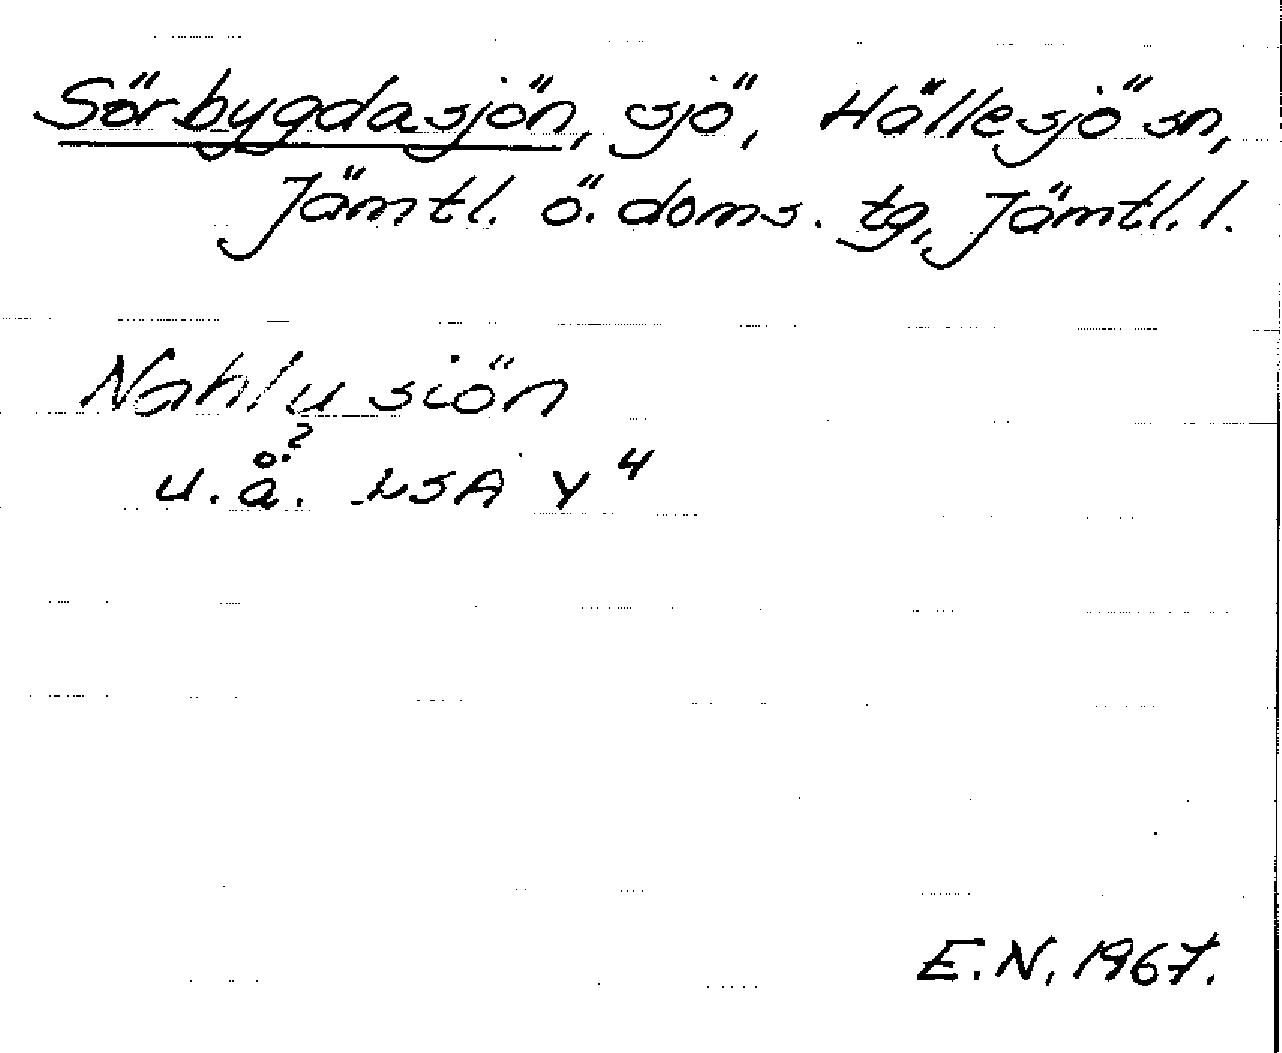 Sörbygdasjön, sjö, Hällesjö sn,
Jämtl. ö. doms. tg, Jämtl. l.
Nahlu siön
?
u. å. LSA Y 4
E.N. 1967.